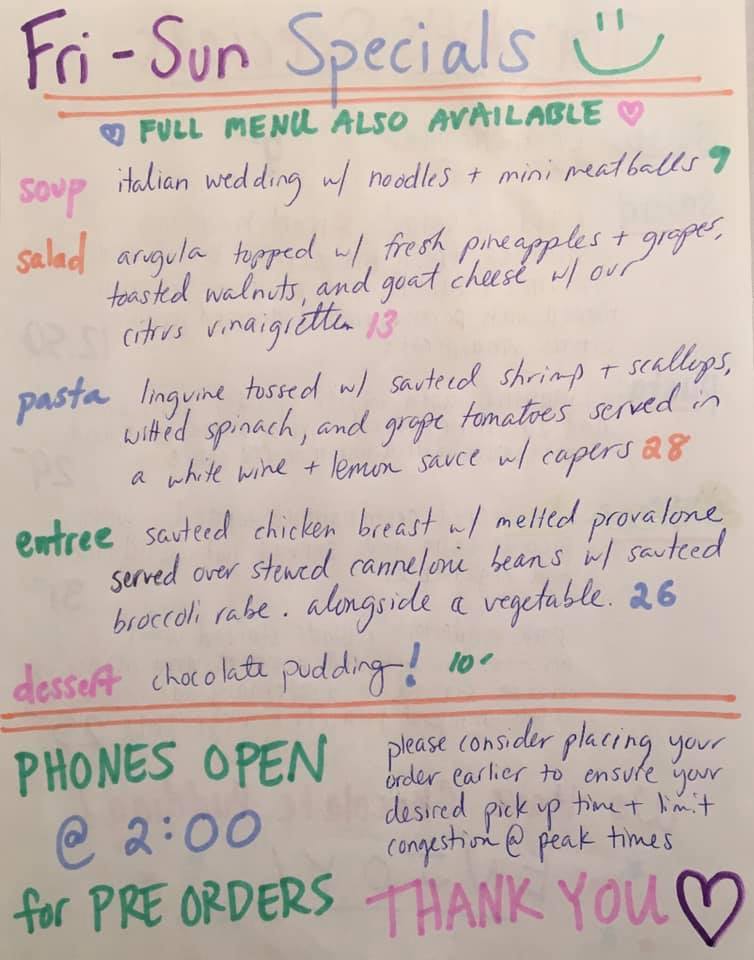 Fri - Sun Specials
FULL MENU ALSO AVAILABLE
soup italian wedding w/ noodles + mini meatballs 9
salad arugula topped w/ fresh pineapples + grapes,
toasted walnuts, and goat cheese w/ our
citrus vinaigrette 13
pasta linguine tossed w/ sauteed shrimp + scallops,
wilted spinach, and grape tomatoes served in
a white wine + lemon sauce w/ capers 28
entree sauteed chicken breast w/ melted provalone
served over stewed cannelone beans w/ sauteed
broccoli rabe. alongside a vegetable. 26
dessert chocolate pudding! 10
PHONES OPEN
@ 2:00
for PRE ORDERS
please consider placing your
order earlier to ensure your
desired pick up time + limit
congestion @ peak times
THANK YOU